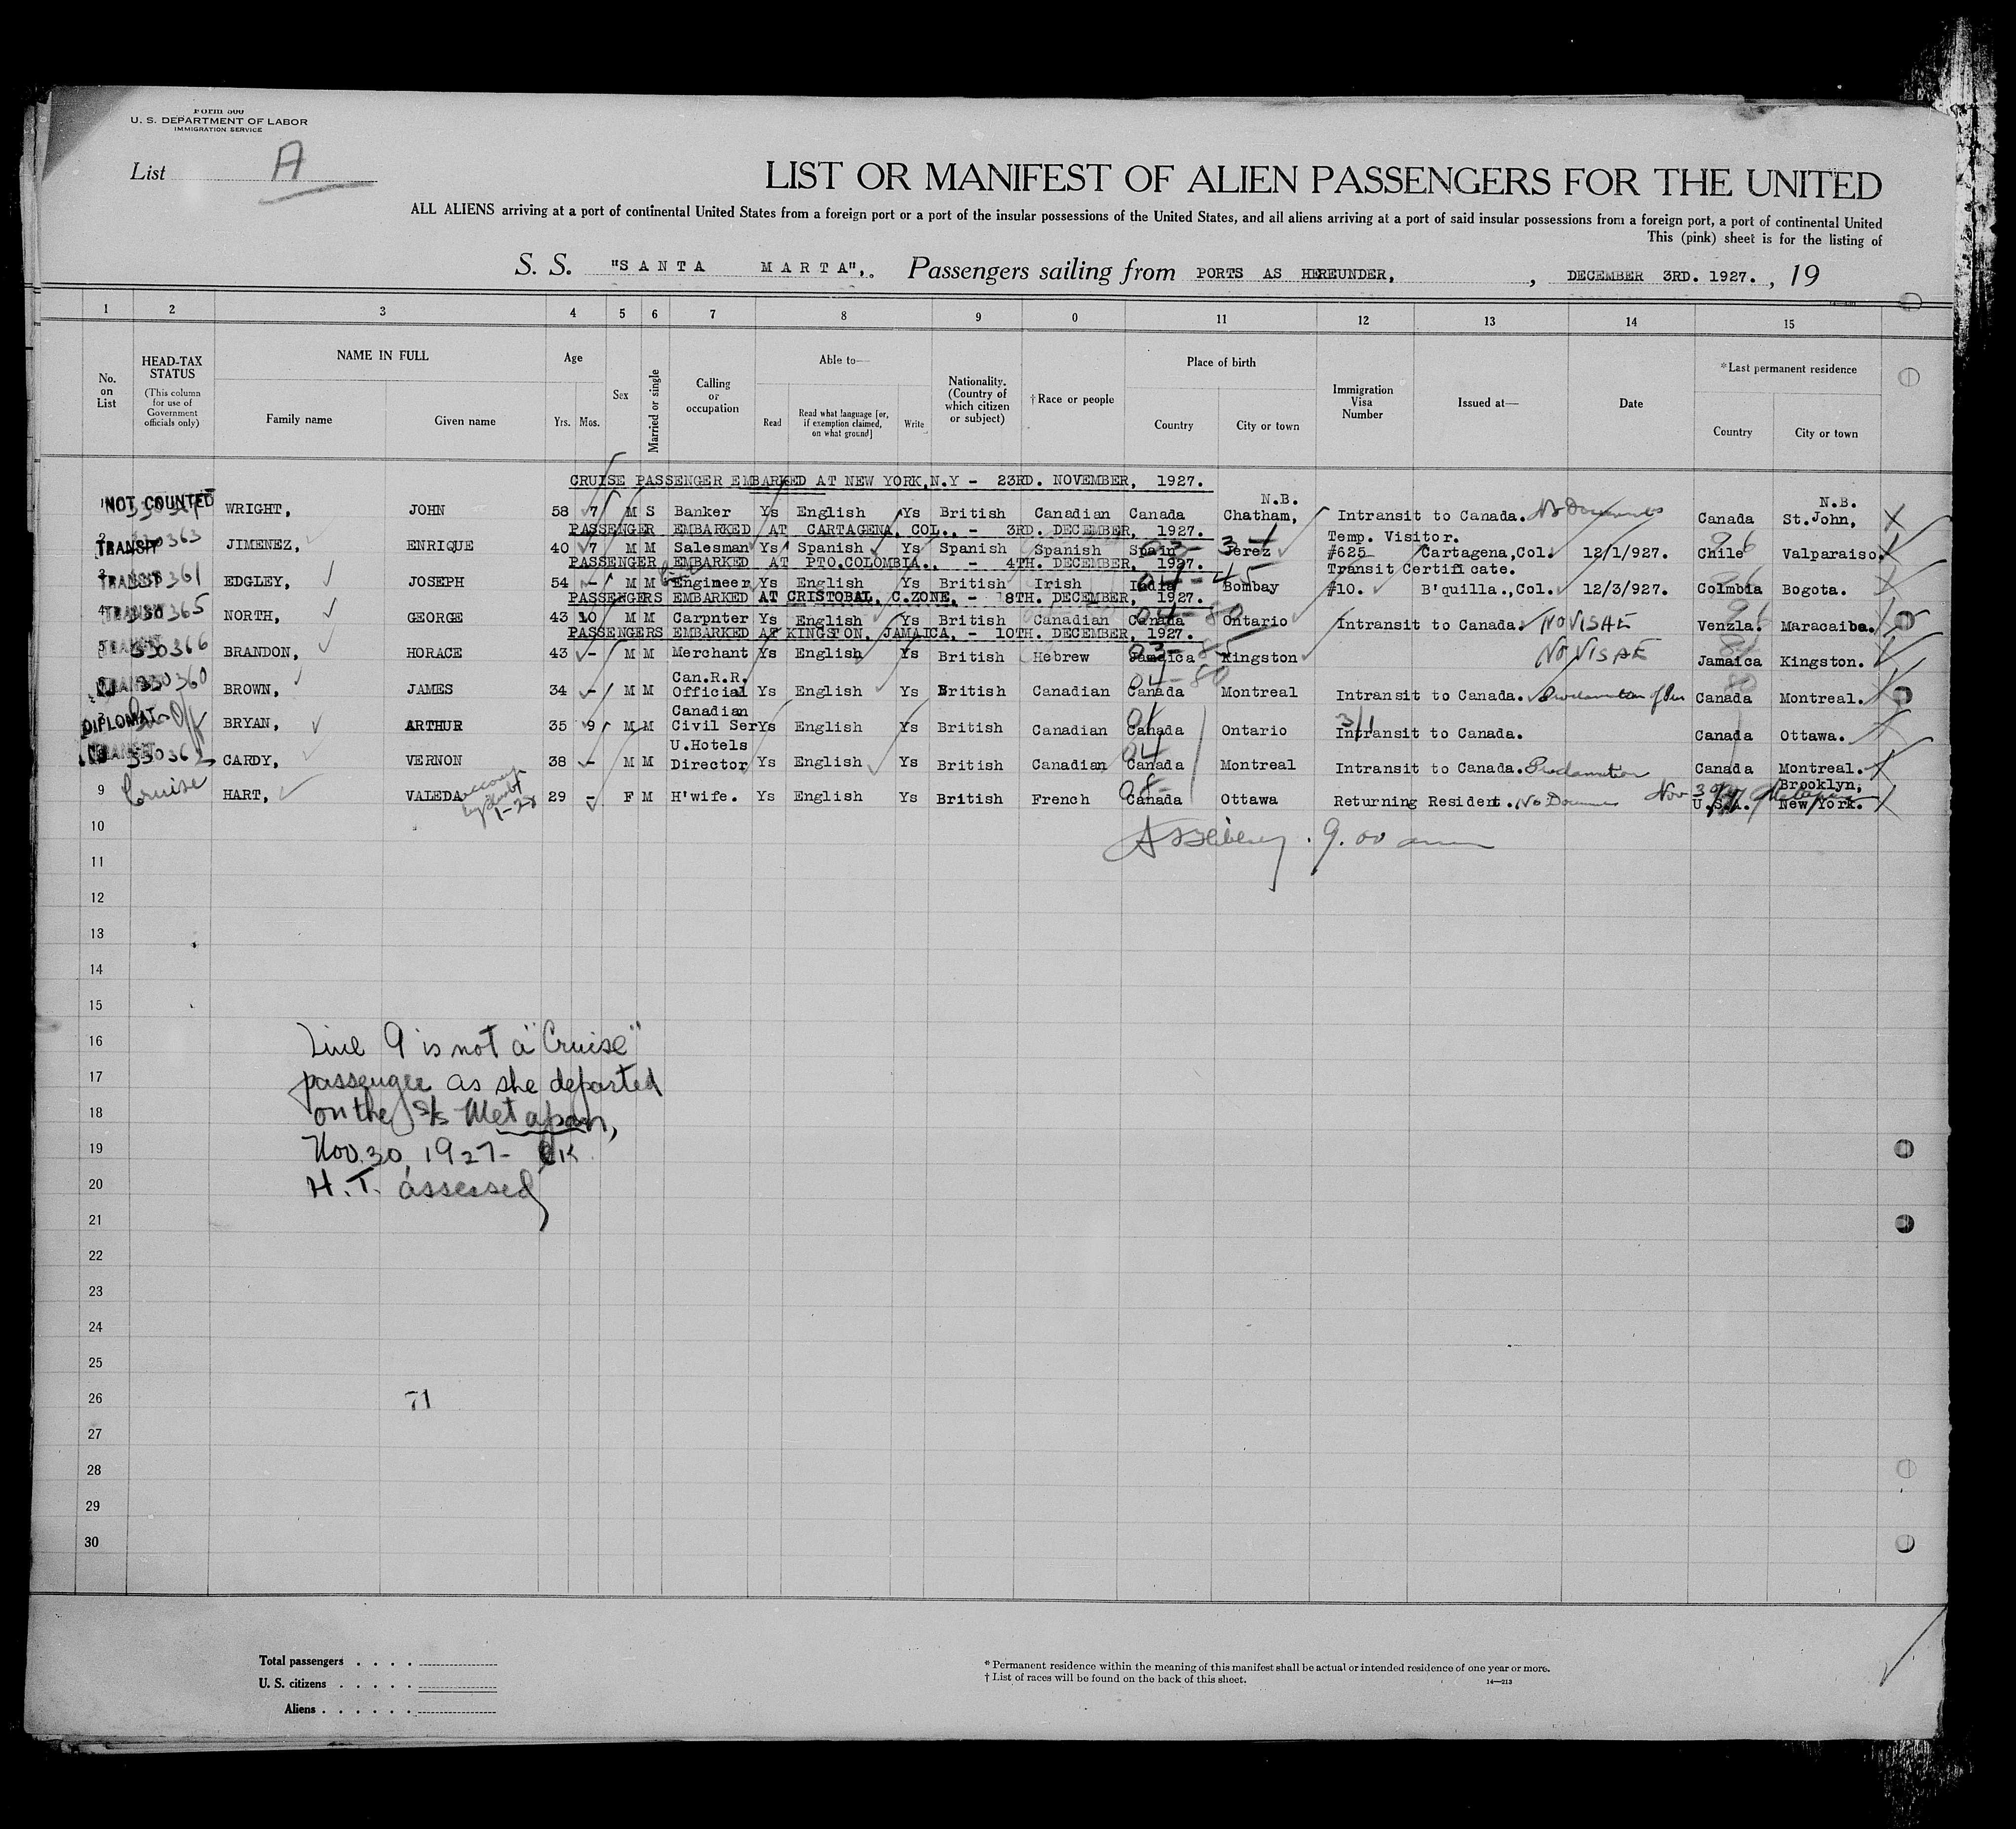 Form 500
U. S. DEPARTMENT OF LABOR
IMMIGRATION SERVICE
List A
LIST OR MANIFEST OF ALIEN PASSENGERS FOR THE UNITED
ALL ALIENS arriving at a port of continental United States from a foreign port or a port of the insular possessions of the United States, and all aliens arriving at a port of said insular possessions from a foreign port, a port of continental United
This (pink) sheet is for the listing of
S. S. "SANTA MARTA", Passengers sailing from PORTS AS HEREUNDER, , DECEMBER 3RD. 1927. , 19
1 2 3 4 5 6 7 8 9 0 11 12 13 14 15
No. on List
HEAD-TAX STATUS
(This column for use of Government officials only)
NAME IN FULL
Family name Given name
Age
Yrs. Mos.
Sex
Married or single
Calling or occupation
Able to—
Read Read what language [or, if exemption claimed, on what ground] Write
Nationality. (Country of which citizen or subject)
† Race or people
Place of birth
Country City or town
Immigration Visa Number
Issued at—
Date
* Last permanent residence
Country City or town
CRUISE PASSENGER EMBARKED AT NEW YORK,N.Y - 23RD. NOVEMBER, 1927.
N.B. N.B.
1 NOT COUNTED WRIGHT, JOHN 58 7 M S Banker Ys English Ys British Canadian Canada Chatham, Intransit to Canada. No Documents Canada St.John,
PASSENGER EMBARKED AT CARTAGENA, COL., - 3RD. DECEMBER, 1927.
Temp. Visitor.
2 TRANSIT 330363 JIMENEZ, ENRIQUE 40 7 M M Salesman Ys Spanish Ys Spanish Spanish Spain Jerez #625 Cartagena,Col. 12/1/927. Chile Valparaiso.
PASSENGER EMBARKED AT PTO.COLOMBIA., - 4TH. DECEMBER, 1927.
Transit Certificate.
3 TRANSIT 330361 EDGLEY, JOSEPH 54 - M M Engineer Ys English Ys British Irish India Bombay #10. B'quilla.,Col. 12/3/927. Colmbia Bogota.
PASSENGERS EMBARKED AT CRISTOBAL, C.ZONE, - 8TH. DECEMBER, 1927.
4 TRANSIT 330365 NORTH, GEORGE 43 10 M M Carpnter Ys English Ys British Canadian Canada Ontario Intransit to Canada. NO VISAE Venzla. Maracaibo.
PASSENGERS EMBARKED AT KINGSTON, JAMAICA, - 10TH. DECEMBER, 1927.
5 TRANSIT 330366 BRANDON, HORACE 43 - M M Merchant Ys English Ys British Hebrew Jamaica Kingston NO VISAE Jamaica Kingston.
Can.R.R.
TRANSIT 330360 BROWN, JAMES 34 - M M Official Ys English Ys British Canadian Canada Montreal Intransit to Canada. Canada Montreal.
Canadian
DIPLOMAT BRYAN, ARTHUR 35 9 M M Civil Ser Ys English Ys British Canadian Canada Ontario 3/1 Intransit to Canada. Canada Ottawa.
U.Hotels
TRANSIT 330362 CARDY, VERNON 38 - M M Director Ys English Ys British Canadian Canada Montreal Intransit to Canada. Proclamation Canada Montreal.
Brooklyn,
9 Cruise HART, VALEDA 29 - F M H'wife. Ys English Ys British French Canada Ottawa Returning Resident. No Nov 30 U.S.A. New York.
10
9.00 am
11
12
13
14
15
16
Line 9 is not a "Cruise"
17
passenger as she departed
18
on the S/S Metapan,
19
Nov. 30, 1927 - OK
20
H. T. assessed
21
22
23
24
25
26
71
27
28
29
30
Total passengers . . . .
U. S. citizens . . . . .
Aliens . . . . . .
* Permanent residence within the meaning of this manifest shall be actual or intended residence of one year or more.
† List of races will be found on the back of this sheet.
14—213